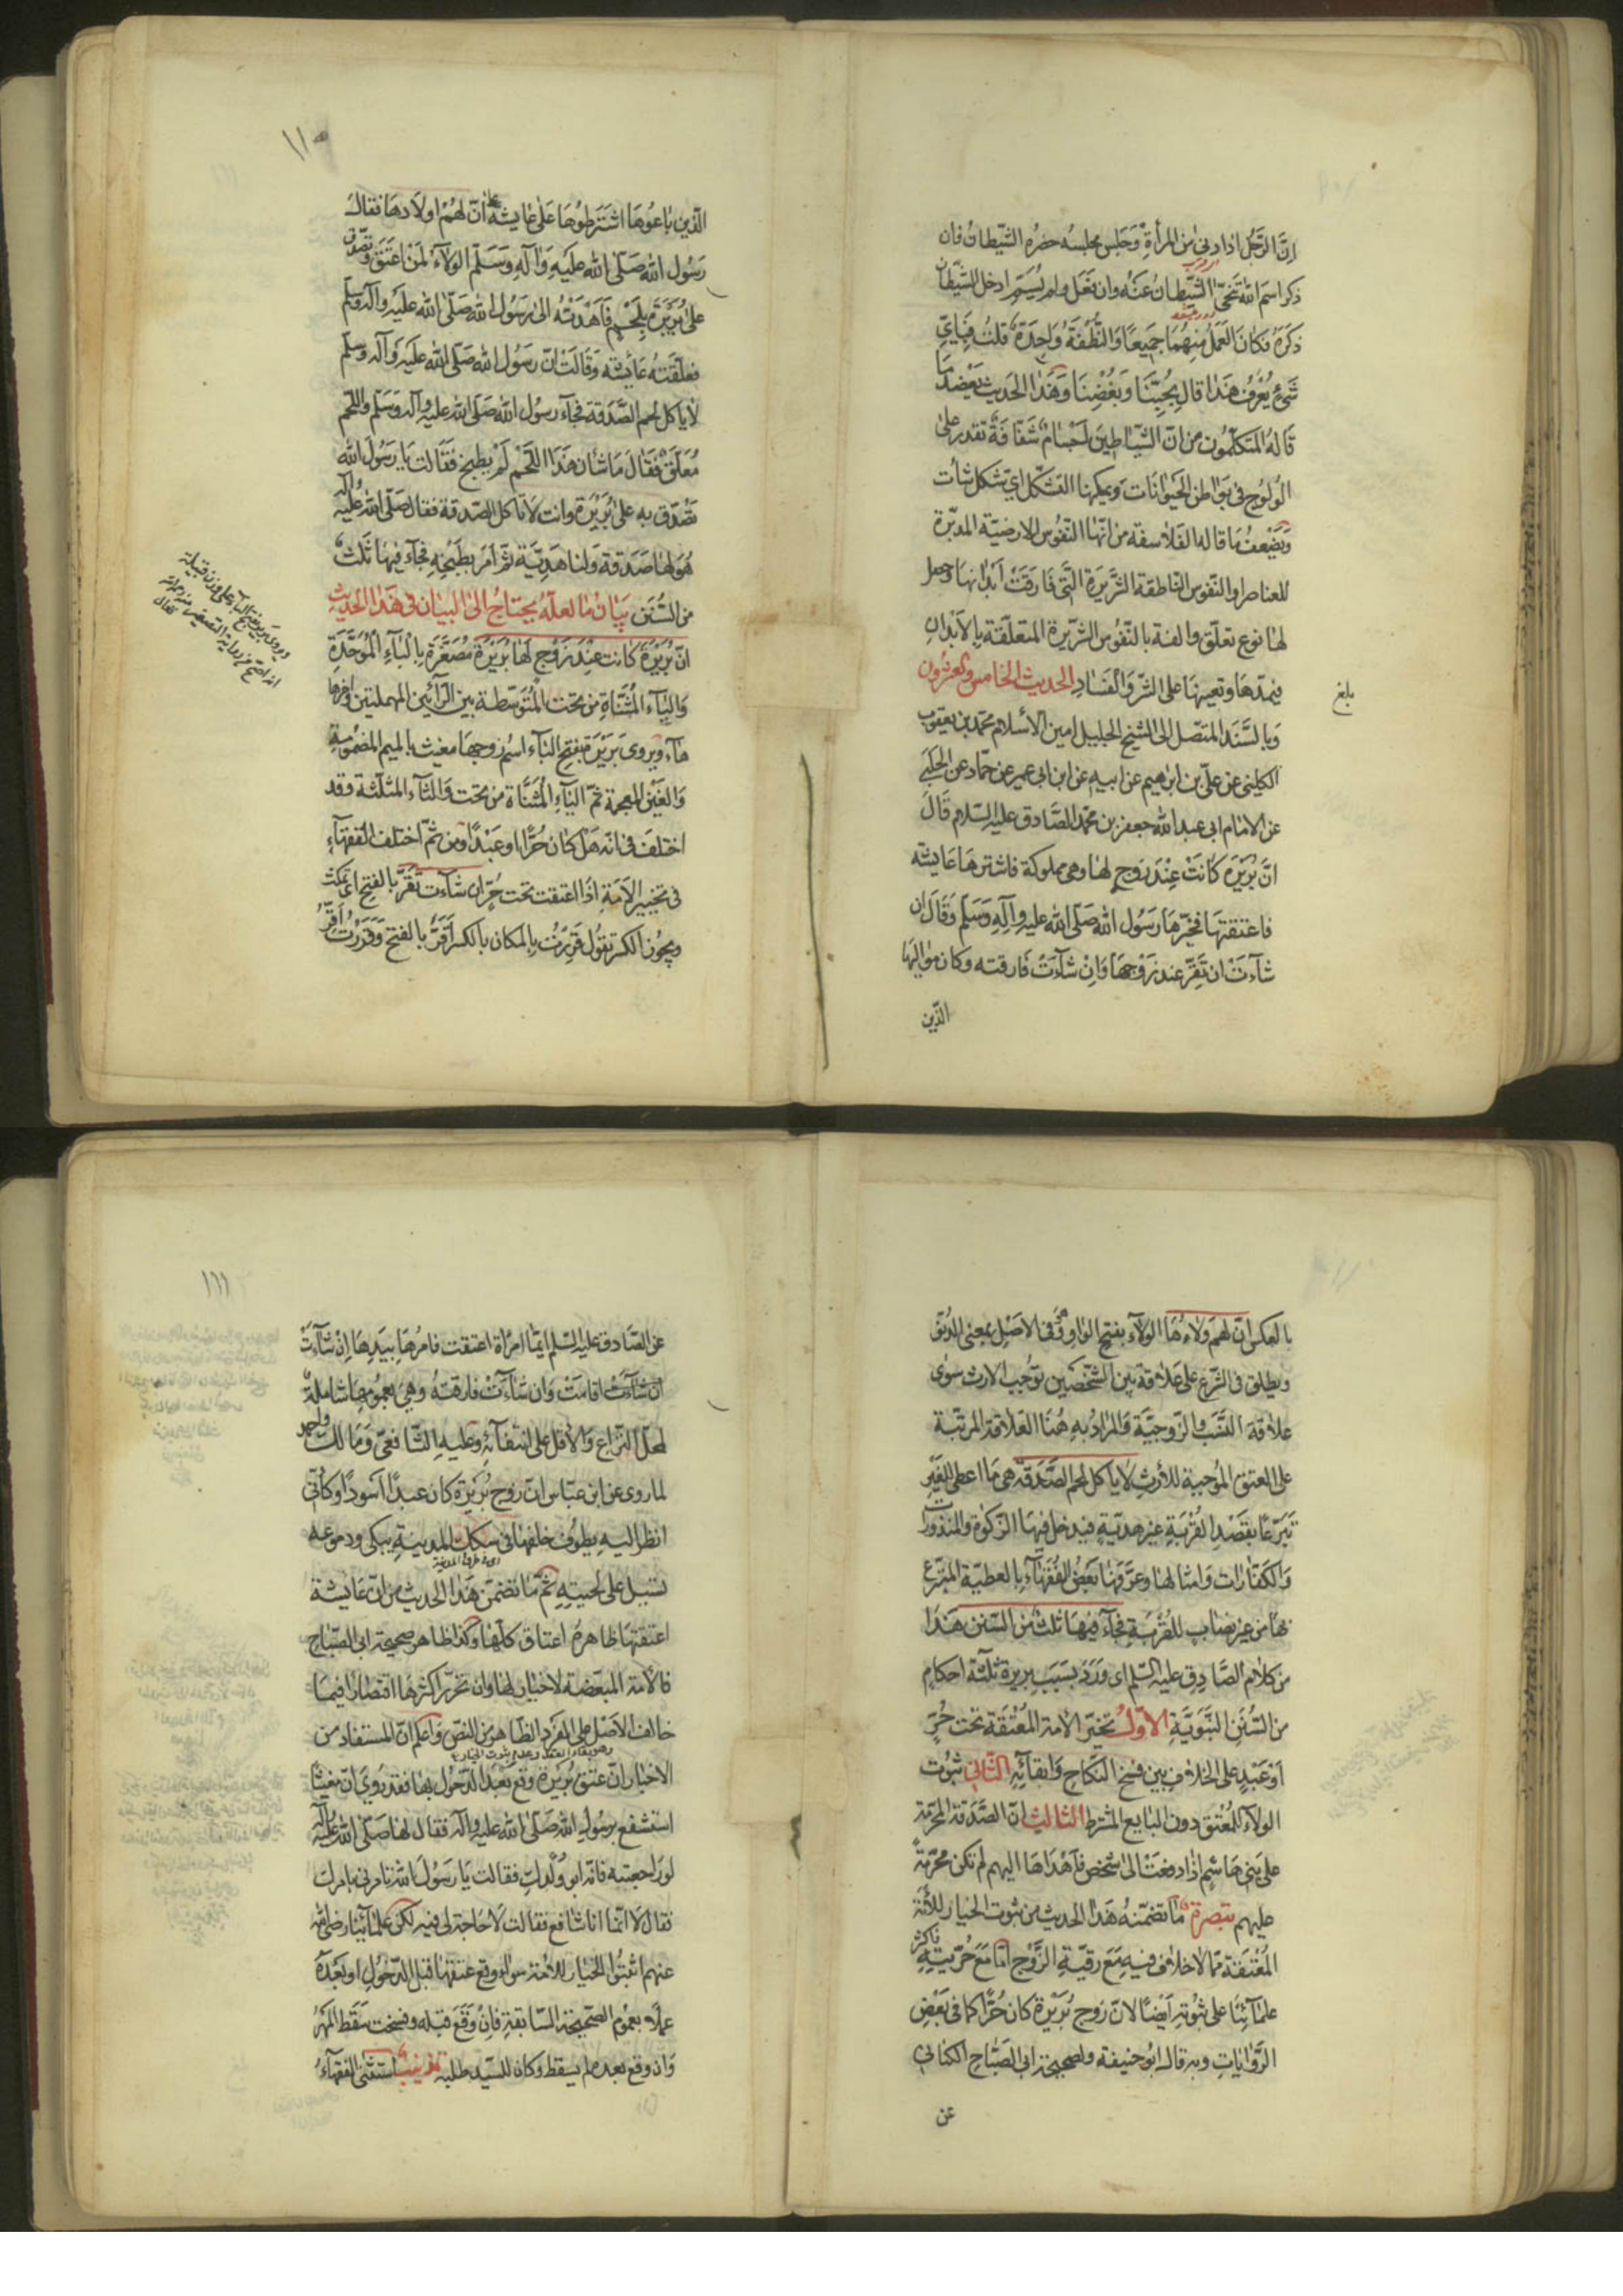 انّ الرّجل اذا دنى من المرأة وجلس مجلسه حضره الشّيطان فان
ذكر اسم الله تنحّى الشّيطان عنه وان فعل ولم يسمّ ادخل الشّيطان
ذكره فكان العمل منهما جميعًا والنّطفة واحدة قلت فبايّ
شئ يعرف هذا قال بحبّنا وبغضنا وهذا الحديث يعضد ما
قاله المتكلّمون من انّ الشّياطين اجسام شفافة تقدر على
الولوج فى بواطن الحيوانات ويمكنها التشكّل اى شكل شاءت
ويضعف ما قاله الفلاسفة من انّها النّفوس الارضيّة المدبّرة
للعناصر او النّفوس الناطقة الشّريرة الّتى فارقت ابدانها وحصل
لها نوع تعلّق والفة بالنّفوس الشّريرة المتعلّقة بالابدان
فيمدّها وتعينها على الشّر والفساد الحديث الخامس والعشرون
بلغ
وبالسّند المتّصل الى الشيخ الجليل امين الاسلام محمّد بن يعقوب
الكلينى عن علىّ بن ابرهيم عن ابيه عن ابن ابى عمير عن حمّاد عن الحلبى
عن الامام ابى عبد الله جعفر بن محمّد الصّادق عليه السّلام قال
انّ بُرَيرة كانت عند زوج لها وهى مملوكة فاشترها عايشه
فاعتقتها فخيّرها رسول الله صلّى الله عليه وآله وسلّم وقال ان
شاءت ان تقرّ عند زوجها وان شاءت فارقته وكان مواليها
الّذين
١١٠
الّذين باعوها اشترطوها على عايشه انّ لهم اولادها فقال
رسول الله صلّى الله عليه وآله وسلّم الولاء لمن اعتق وتصدّق
على بُرَيرة بلحم فاهدته الى رسول الله صلّى الله عليه وآله وسلّم
فعلّقته عايشه وقالت انّ رسول الله صلّى الله عليه وآله وسلّم
لا ياكل لحم الصّدقة فجآء رسول الله صلّى الله عليه وآله وسلّم واللحم
معلّق فقال ما شان هذا اللّحم لم يطبخ فقالت يا رسول الله
تصدّق به على بُرَيرة وانت لا تاكل الصّدقة فقال صلّى الله عليه وآله
هو لها صدقة ولنا هديّة ثمّ امر بطبخه فجآء فيها ثلث
من السُّنن بيان ما لعلّه يحتاج الى البيان فى هذا الحديث
انّ بُرَيرة كانت عند زوج لها بُرَيرة مصغّرة بالباء الموحّدة
والياء المثنّاة من تحت المتوسّطة بين الرّائين المهملتين واخرها
هآء ويروى بَريرة بفتح الباء اسم زوجها مغيث بالميم المضمومة
والغين المعجمة ثمّ الياء المثنّاة من تحت والثاء المثلّثة وقد
اختلف فى انّه هل كان حُرًّا او عبدًا ومن ثمّ اختلف الفقهآء
فى تخيير الامة اذا اعتقت تحت حُرّ ان شاءت تقرّ بالفتح اى تمكث
ويجوز الكسر تقول قررت بالمكان بالكسر اقرّ بالفتح وقررت اقرّ
بالعكس انّ لهم ولاءها الولاء بفتح الواو وفى الاصل بمعنى الدنوّ
ويطلق فى الشّرع على علاقة بين الشّخصين توجب الارث سوى
علاقة النّسب والزّوجيّة والمراد به هنا العلاقة المرتّبة
على العتق الموجبة للارث لا ياكل لحم الصّدقة هى ما اعطى للغير
تبرّعًا بقصد القربة غير هديّة فيدخل فيها الزّكوة والمنذورات
والكفّارات وامثالها وعرّفها بعض الفقهآء بالعطيّة المتبرّع
بها من غير نصاب للقربة فجآء فيها ثلث من السّنن هذا
من كلام الصّادق عليه السّلم اى ورد بسبب بريرة ثلثة احكام
من السُّنن النّبويّة الاوّل تخيّر الامة المعتقة تحت حُرّ
او عبد على الخلاف بين فسخ النّكاح وابقائه الثّانى ثبوت
الولاء للمعتق دون البايع المشترط الثالث انّ الصّدقة المحرّمة
على بنى هاشم اذا دفعت الى شخص فاهداها اليهم لم تكن محرّمة
عليهم تبصرة ما تضمّنه هذا الحديث من ثبوت الخيار للامة
المعتقة ممّا لا خلاف فيه مع رقيّة الزّوج امّا مع حُرّيته فاكثر
علمآئنا على ثبوته ايضًا لانّ زوج بُرَيرة كان حُرًّا كما فى بعض
الرّوايات وبه قال ابو حنيفة ولصحيحة ابى الصّباح الكنانى
عن
١١١
عن الصّادق عليه السّلم ايّما امرأة اعتقت فامرها بيدها ان شآءت
ان شآءت اقامت وان شآءت فارقته وهى بعمومها شاملة
لمحلّ النّزاع والاقل على انتفائه وعليه الشّافعى ومالك واحمد
لما روى عن ابن عبّاس انّ زوج بُرَيرة كان عبدًا اسودًا وكانّى
انظر اليه يطوف خلفها فى سكك المدينة يبكى ودموعه
تسيل على لحيته ثمّ ما تضمّن هذا الحديث من انّ عايشة
اعتقتها ظاهره اعتاق كلّها وكذا ظاهر صحيحة ابى الصّباح
فالامة المبعّضة لا خيار لها وان تحرّر اكثرها اقتصارًا فيما
خالف الاصل على الفرد الظاهر من النصّ واعلم انّ المستفاد من
الاخبار انّ عتق بُرَيرة وقع بعد الدّخول بها فقد روى انّ مغيثًا
استشفع برسول الله صلّى الله عليه وآله فقال لها صلّى الله عليه وآله
لو راجعتيه فانّه ابو ولدك فقالت يا رسول الله تامرنى بامرك
فقال لا انّما انا شافع فقالت لا حاجة لى فيه لكن علمآئنا رضى الله
عنهم اثبتوا الخيار للامة سواء وقع عتقها قبل الدّخول او بعده
عملًا بعموم الصّحيحة السّابقة فان وقع قبله وفسخت سقط المهر
وان وقع بعده لم يسقط وكان للسّيد طلبه تذنيب استثنى الفقهآء